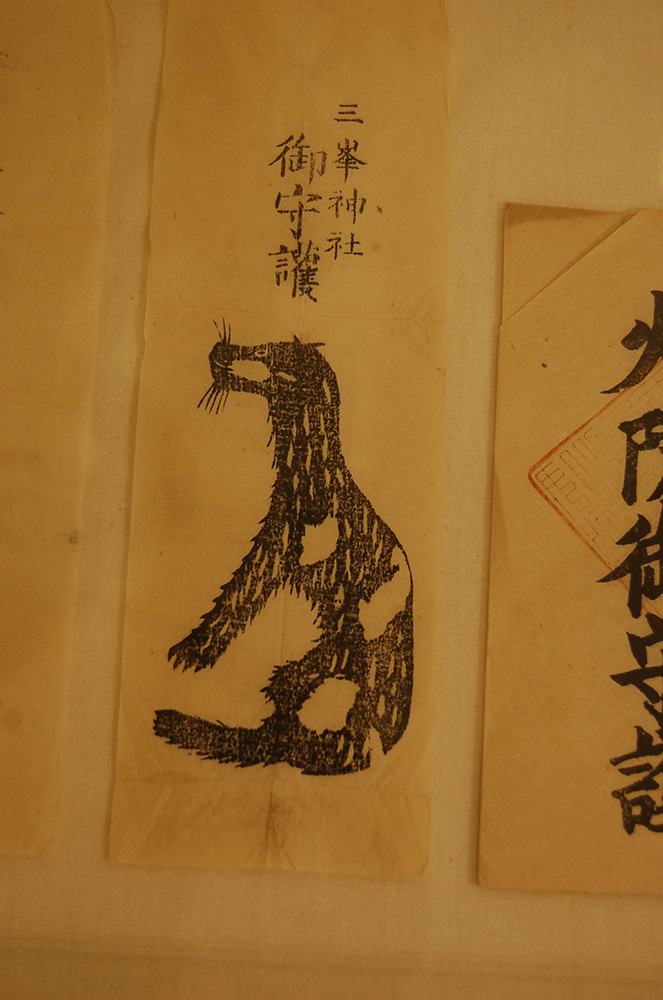 三峯神社
御守護
火防御守護